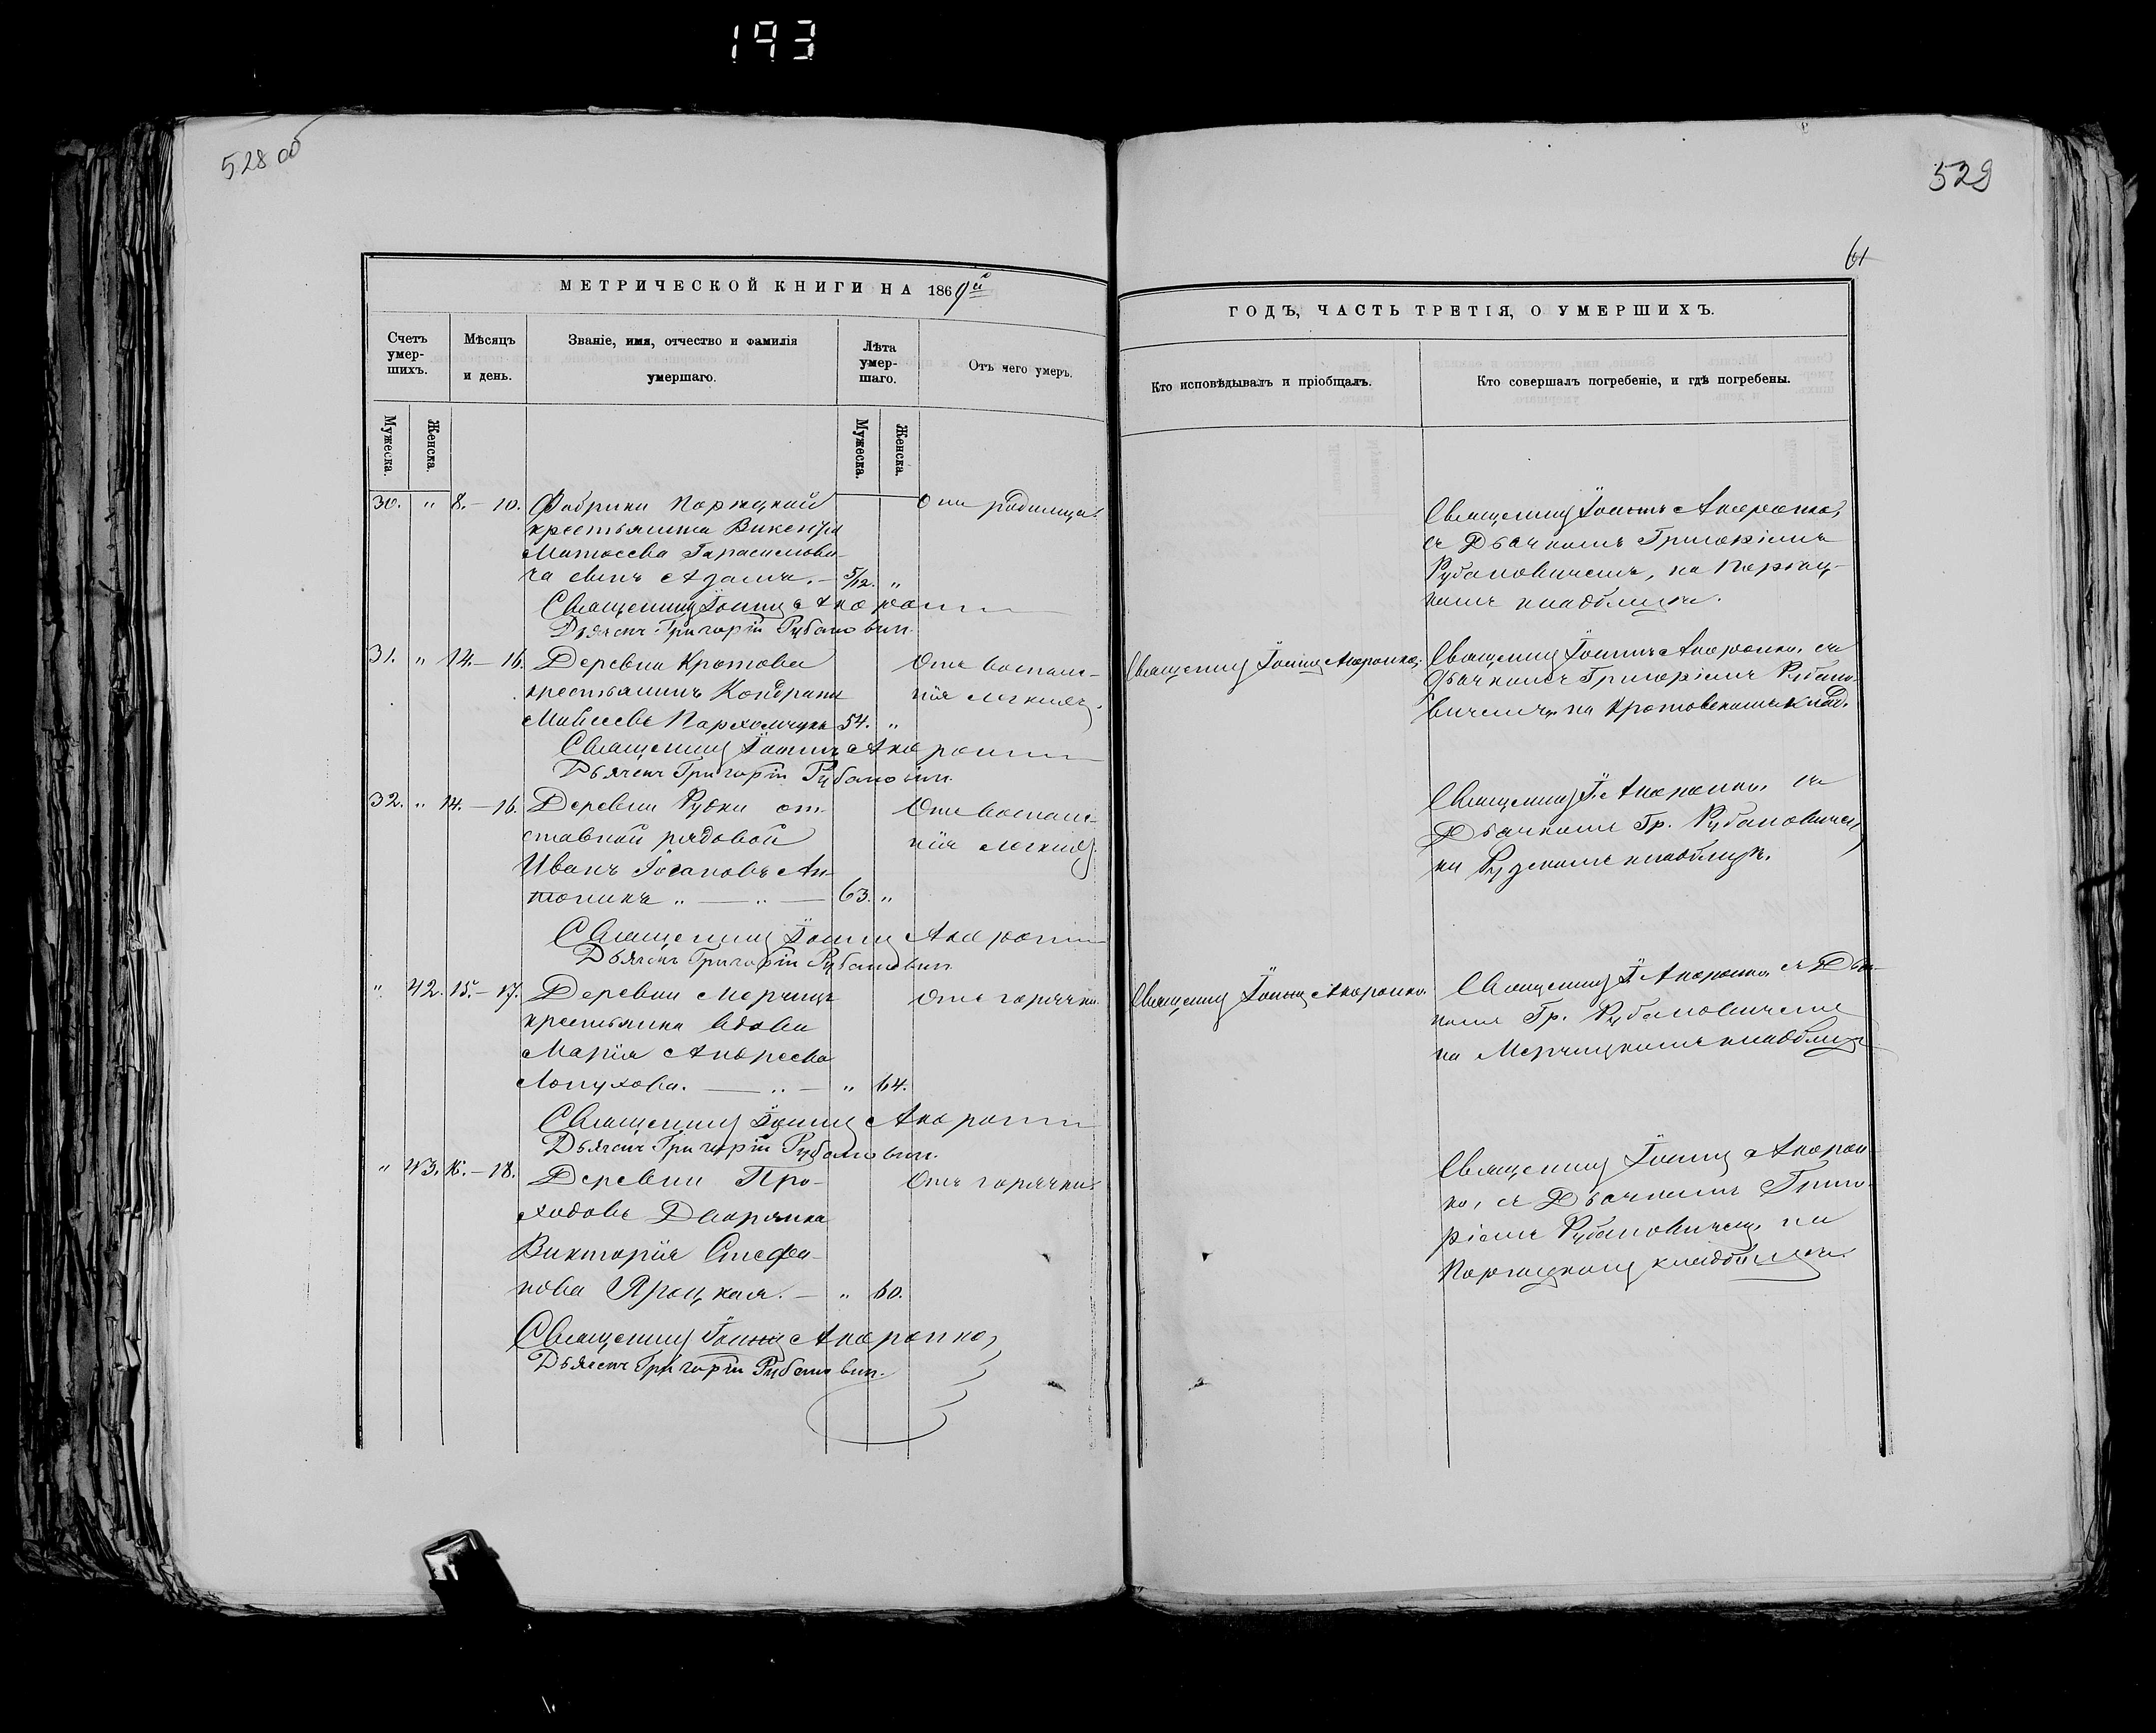 193
528 об
529
61
МЕТРИЧЕСКОЙ КНИГИ НА 1869й
ГОДЪ, ЧАСТЬ ТРЕТІЯ, О УМЕРШИХЪ.
Счетъ умер-шихъ.
Мѣсяцъ и день.
Званіе, имя, отчество и фамилія умершаго.
Лѣта умер-шаго.
Отъ чего умеръ.
Кто исповѣдывалъ и пріобщалъ.
Кто совершалъ погребеніе, и гдѣ погребены.
Мужеска.
Женска.
Мужеска.
Женска.
30. " 8. - 10. Фабрики
крестьянина Викентія
Матвеева Гарасимови-
ча сынъ Адамъ. - 5/12. "
Отъ родимца.
Священникъ Іоаннъ
съ Дьячкомъ Григоріемъ
Рубановичемъ, на
кладбищѣ.
Священникъ Іоаннъ
Дьячекъ Григорій Рубановичъ
31. " 14. - 16. Деревни Кротова
крестьянинъ Кондратъ
Моисеевъ Пархомчукъ 54. "
Отъ воспале-
нія легкихъ.
Священникъ Іоаннъ
Священникъ Іоаннъ съ
Дьячкомъ Григоріемъ Рубано-
вичемъ, на Кротовскомъ клад.
Священникъ Іоаннъ
Дьячекъ Григорій Рубановичъ
32. " 14. - 16. Деревни Рудки от-
ставной рядовой
Иванъ Ан-
тоникъ " — " — 63. "
Отъ воспале-
нія легкихъ.
Священникъ І. съ
Дьячкомъ Гр. Рубановичемъ,
на Рудскомъ кладбищѣ.
Священникъ Іоаннъ
Дьячекъ Григорій Рубановичъ
" 42. 15. - 17. Деревни Мерчицъ
крестьянка вдова
Марія Андреева
Лопухова. — " — " 64.
Отъ горячки.
Священникъ Іоаннъ
Священникъ І. съ Дья-
комъ Гр. Рубановичемъ
на Мерчицкомъ кладбищѣ
Священникъ Іоаннъ
Дьячекъ Григорій Рубановичъ
" 43. 16. - 18. Деревни Про-
ходовъ Дворянка
Викторія Стефа-
нова Яроцкая. — " 60.
Отъ горячки.
Священникъ Іоаннъ
съ Дьячкомъ Григо-
ріемъ Рубановичемъ, на
кладбищѣ.
Священникъ Іоаннъ
Дьячекъ Григорій Рубановичъ